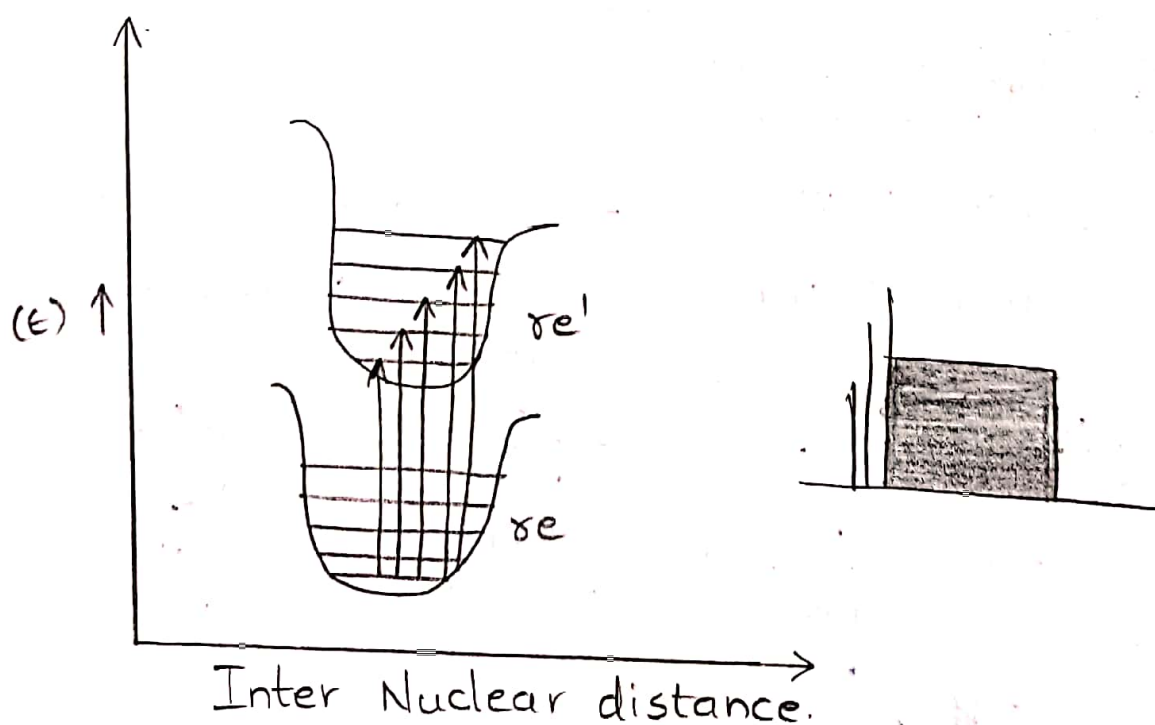 (E) ↑
re'
re
Inter Nuclear distance.